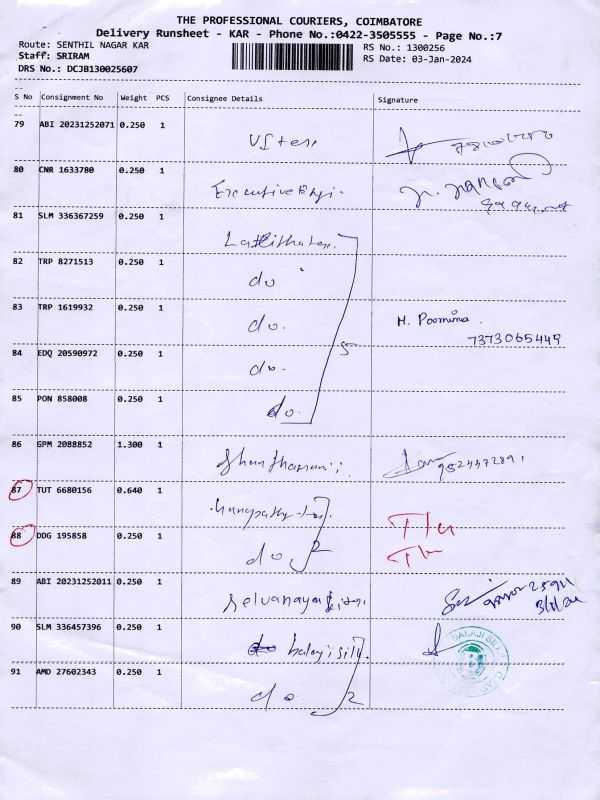 THE PROFESSIONAL COURIERS, COIMBATORE
Delivery Runsheet - KAR - Phone No.:0422-3505555 - Page No.:7
Route: SENTHIL NAGAR KAR
RS No.: 1300256
Staff: SRIRAM
RS Date: 03-Jan-2024
DRS No.: DCJB130025607
S No Consignment No Weight PCS Consignee Details Signature
79 ABI 20231252071 0.250 1
80 CNR 1633780 0.250 1 Executive Engi.
81 SLM 336367259 0.250 1
82 TRP 8271513 0.250 1 do
83 TRP 1619932 0.250 1 do. M. Poornima
7373065449
84 EDQ 20590972 0.250 1 do. 5
85 PON 858008 0.250 1 do.
86 GPM 2088852 1.300 1 Shanthamani
87 TUT 6680156 0.640 1
88 DDG 195858 0.250 1 do 2
89 ABI 20231252011 0.250 1
90 SLM 336457396 0.250 1 do balaji silk. BALAJI SILK
91 AMD 27602343 0.250 1 do 2